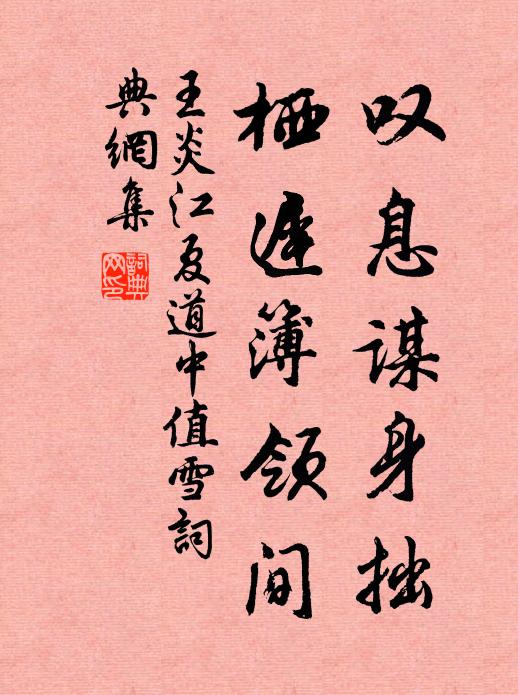 叹息谋身拙
栖迟簿领间
王炎江夏道中值雪詞
典網集
詞典网印